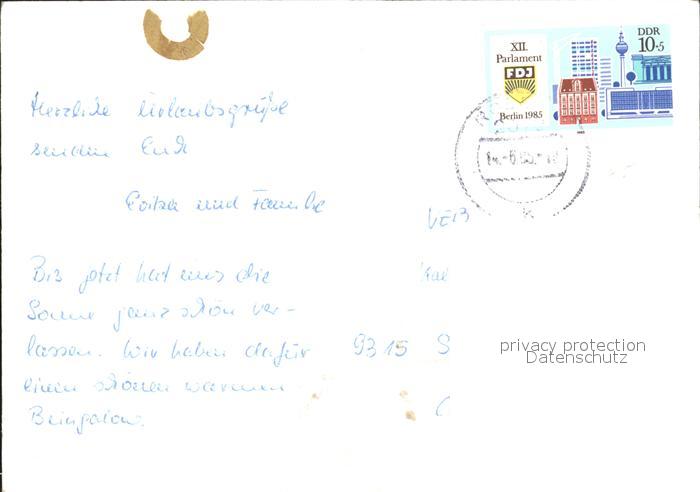 XII.
Parlament
FDJ
Berlin 1985
DDR
10+5
Herzliche Urlaubsgrüße
senden Euch
und Familie
VEB
Bis jetzt hat uns die
Sonne ganz schön ver-
lassen. Wir haben dafür
9315 S
einen schönen warmen
Bungalow.
privacy protection
Datenschutz